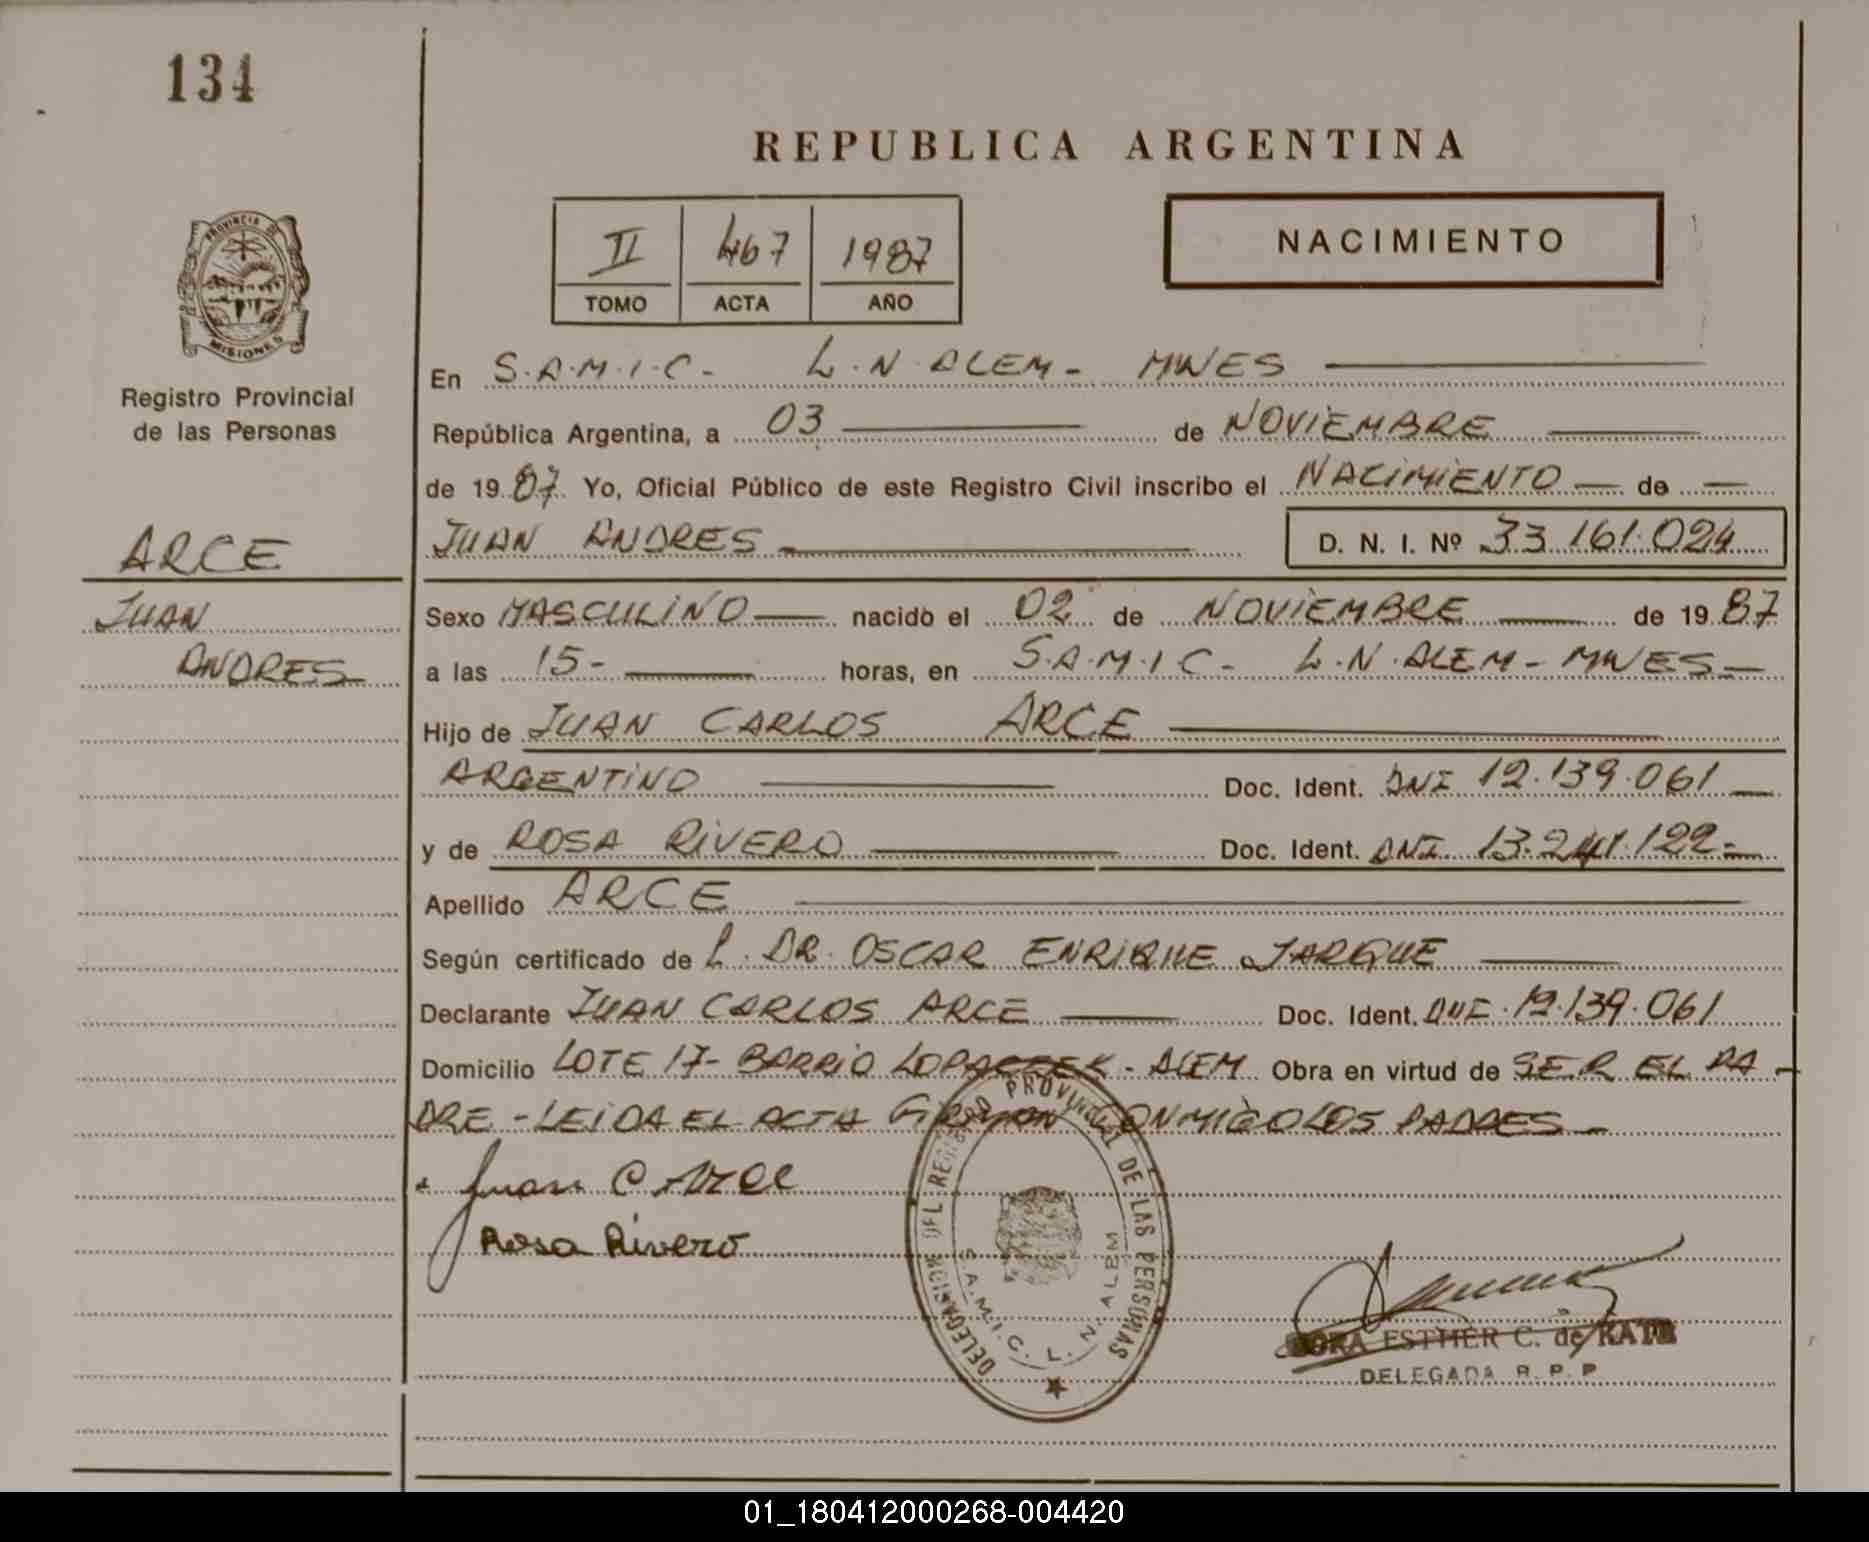 134
REPUBLICA ARGENTINA
PROVINCIA DE MISIONES
Registro Provincial
de las Personas
II 467 1987
TOMO ACTA AÑO
NACIMIENTO
En S.A.M.I.C- L.N.ALEM- MNES
República Argentina, a 03 de NOVIEMBRE
de 1987 Yo, Oficial Público de este Registro Civil inscribo el NACIMIENTO de
JUAN ANDRES D. N. I. Nº 33.161.024
ARCE
JUAN
ANDRES
Sexo MASCULINO nacido el 02 de NOVIEMBRE de 1987
a las 15- horas, en S.A.M.I C- L.N.ALEM- MNES-
Hijo de JUAN CARLOS ARCE
ARGENTINO Doc. Ident. DNI 12.139.061
y de ROSA RIVERO Doc. Ident. DNI. 13.241.122-
Apellido ARCE
Según certificado de L. DR. OSCAR ENRIQUE JARQUE
Declarante JUAN CARLOS ARCE Doc. Ident. DNI. 12.139.061
Domicilio LOTE 17- BARRIO - ALEM Obra en virtud de SER EL PA-
DRE - LEIDA EL ACTA FIRMAN CONMIGO LOS PADRES-
Juan C Arce
Rosa Rivero
DELEGACION DEL REGISTRO PROVINCIAL DE LAS PERSONAS
S.A.M.I.C. L. N. ALEM
ESTHER C. de
DELEGADA R. P. P
01_180412000268-004420